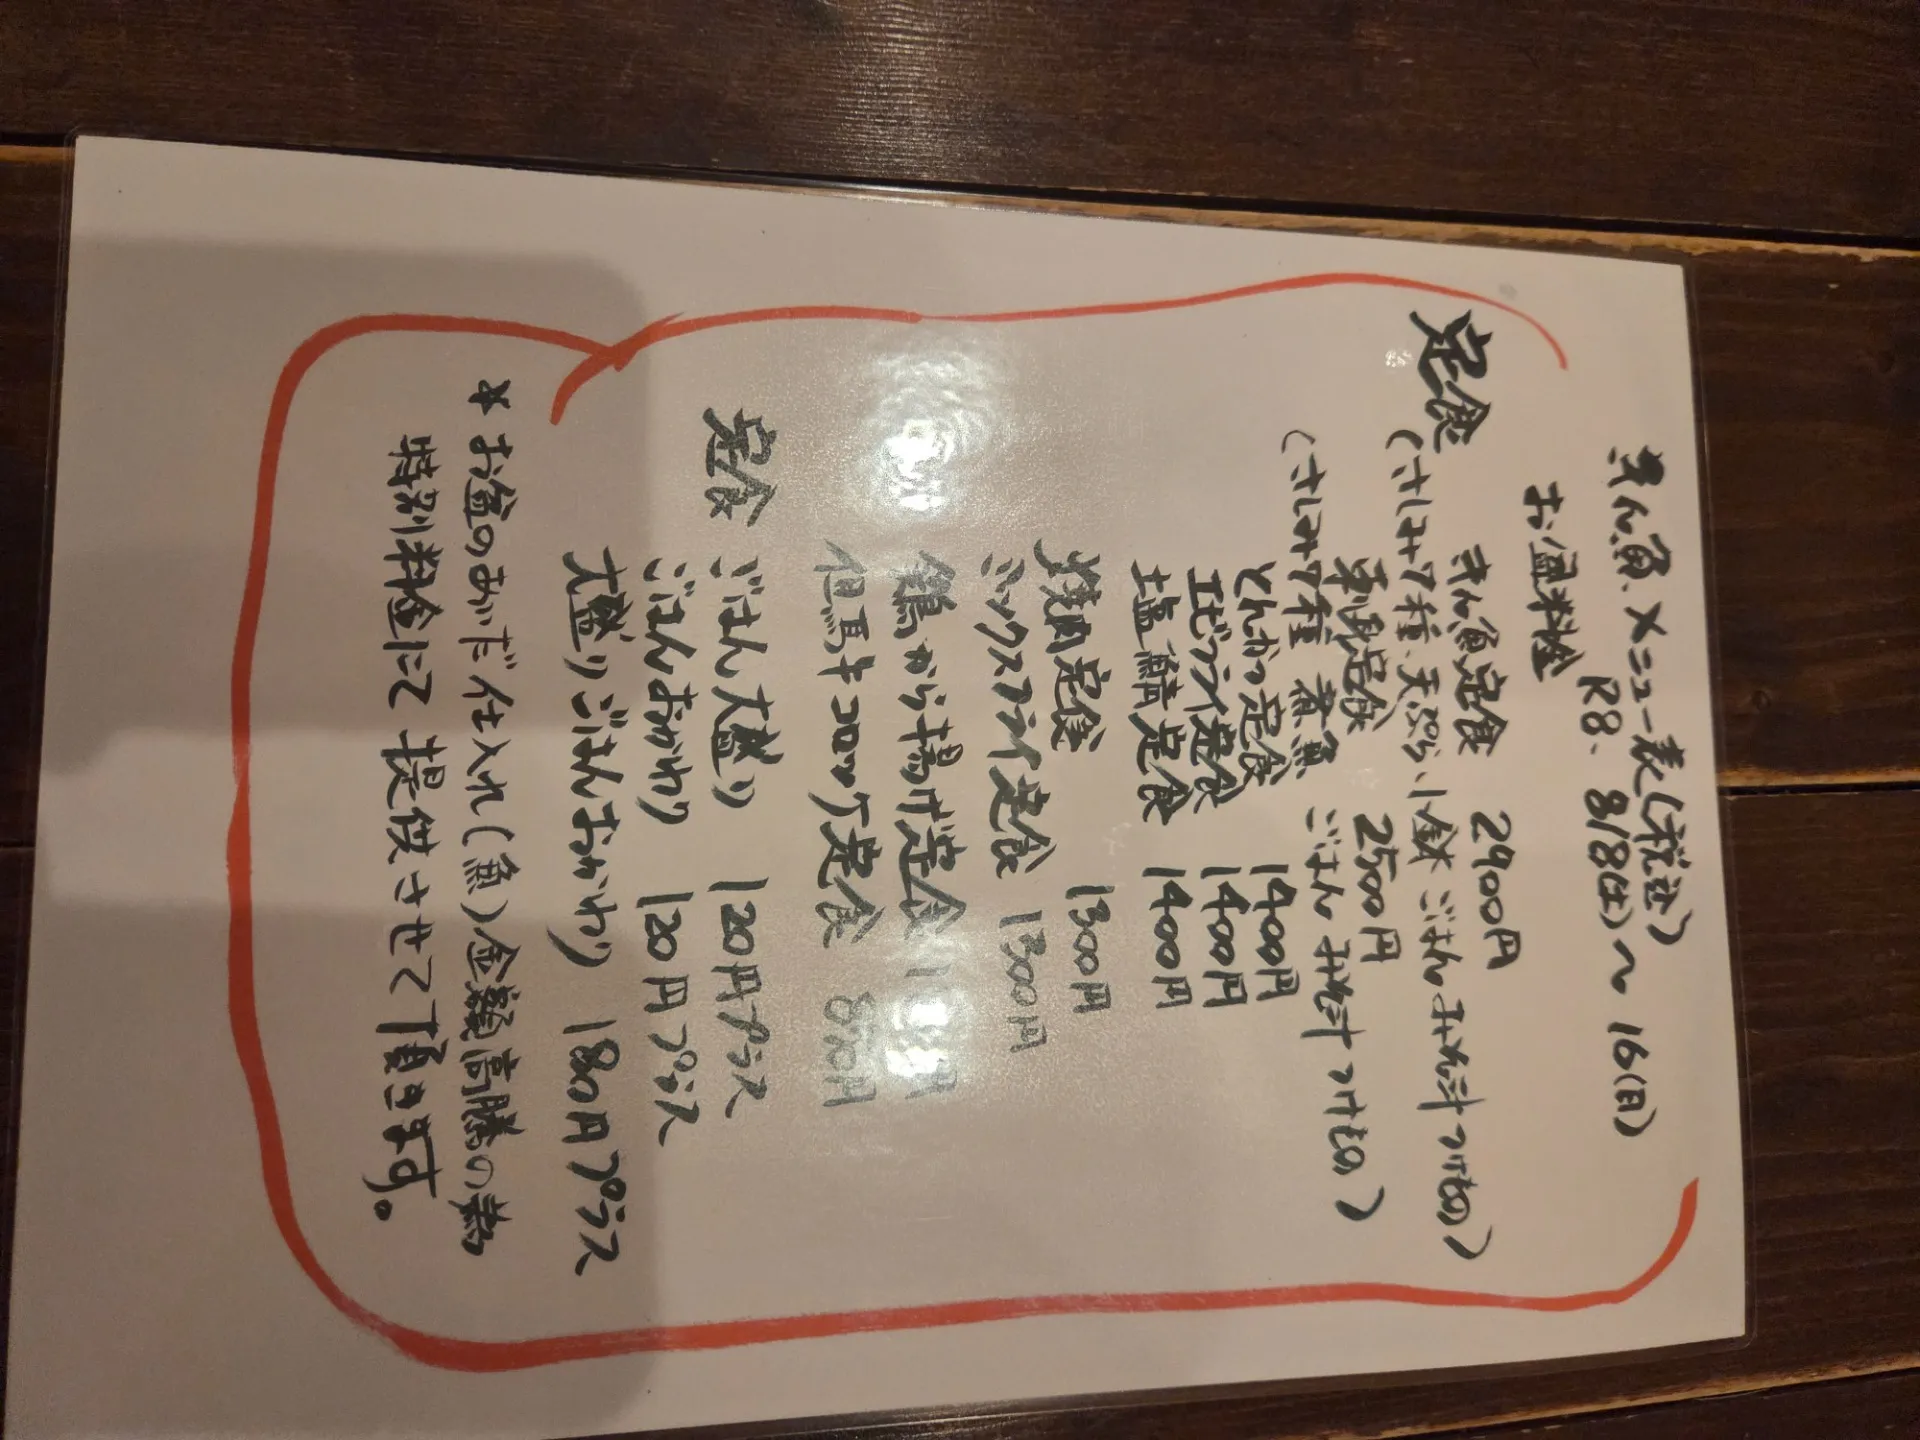 きん魚、メニュー表(税込)
R8、8/8(土)〜16(日)
お盆料金
定食
きん魚定食 2900円
(さしみ7種、天ぷら、小鉢 ごはん みそ汁 つけもの)
刺身定食 2500円
(さしみ7種 煮魚 ごはん みそ汁 つけもの)
とんかつ定食 1400円
エビフライ定食 1400円
塩鯖定食 1400円
焼肉定食 1300円
ミックスフライ定食 1300円
鶏から揚げ定食 円
但馬牛コロッケ定食 850円
定食
ごはん大盛り 120円プラス
ごはんおかわり 120円プラス
大盛りごはんおかわり 180円プラス
* お盆のあいだ仕入れ(魚)金額高騰の為
特別料金にて提供させて頂きます。